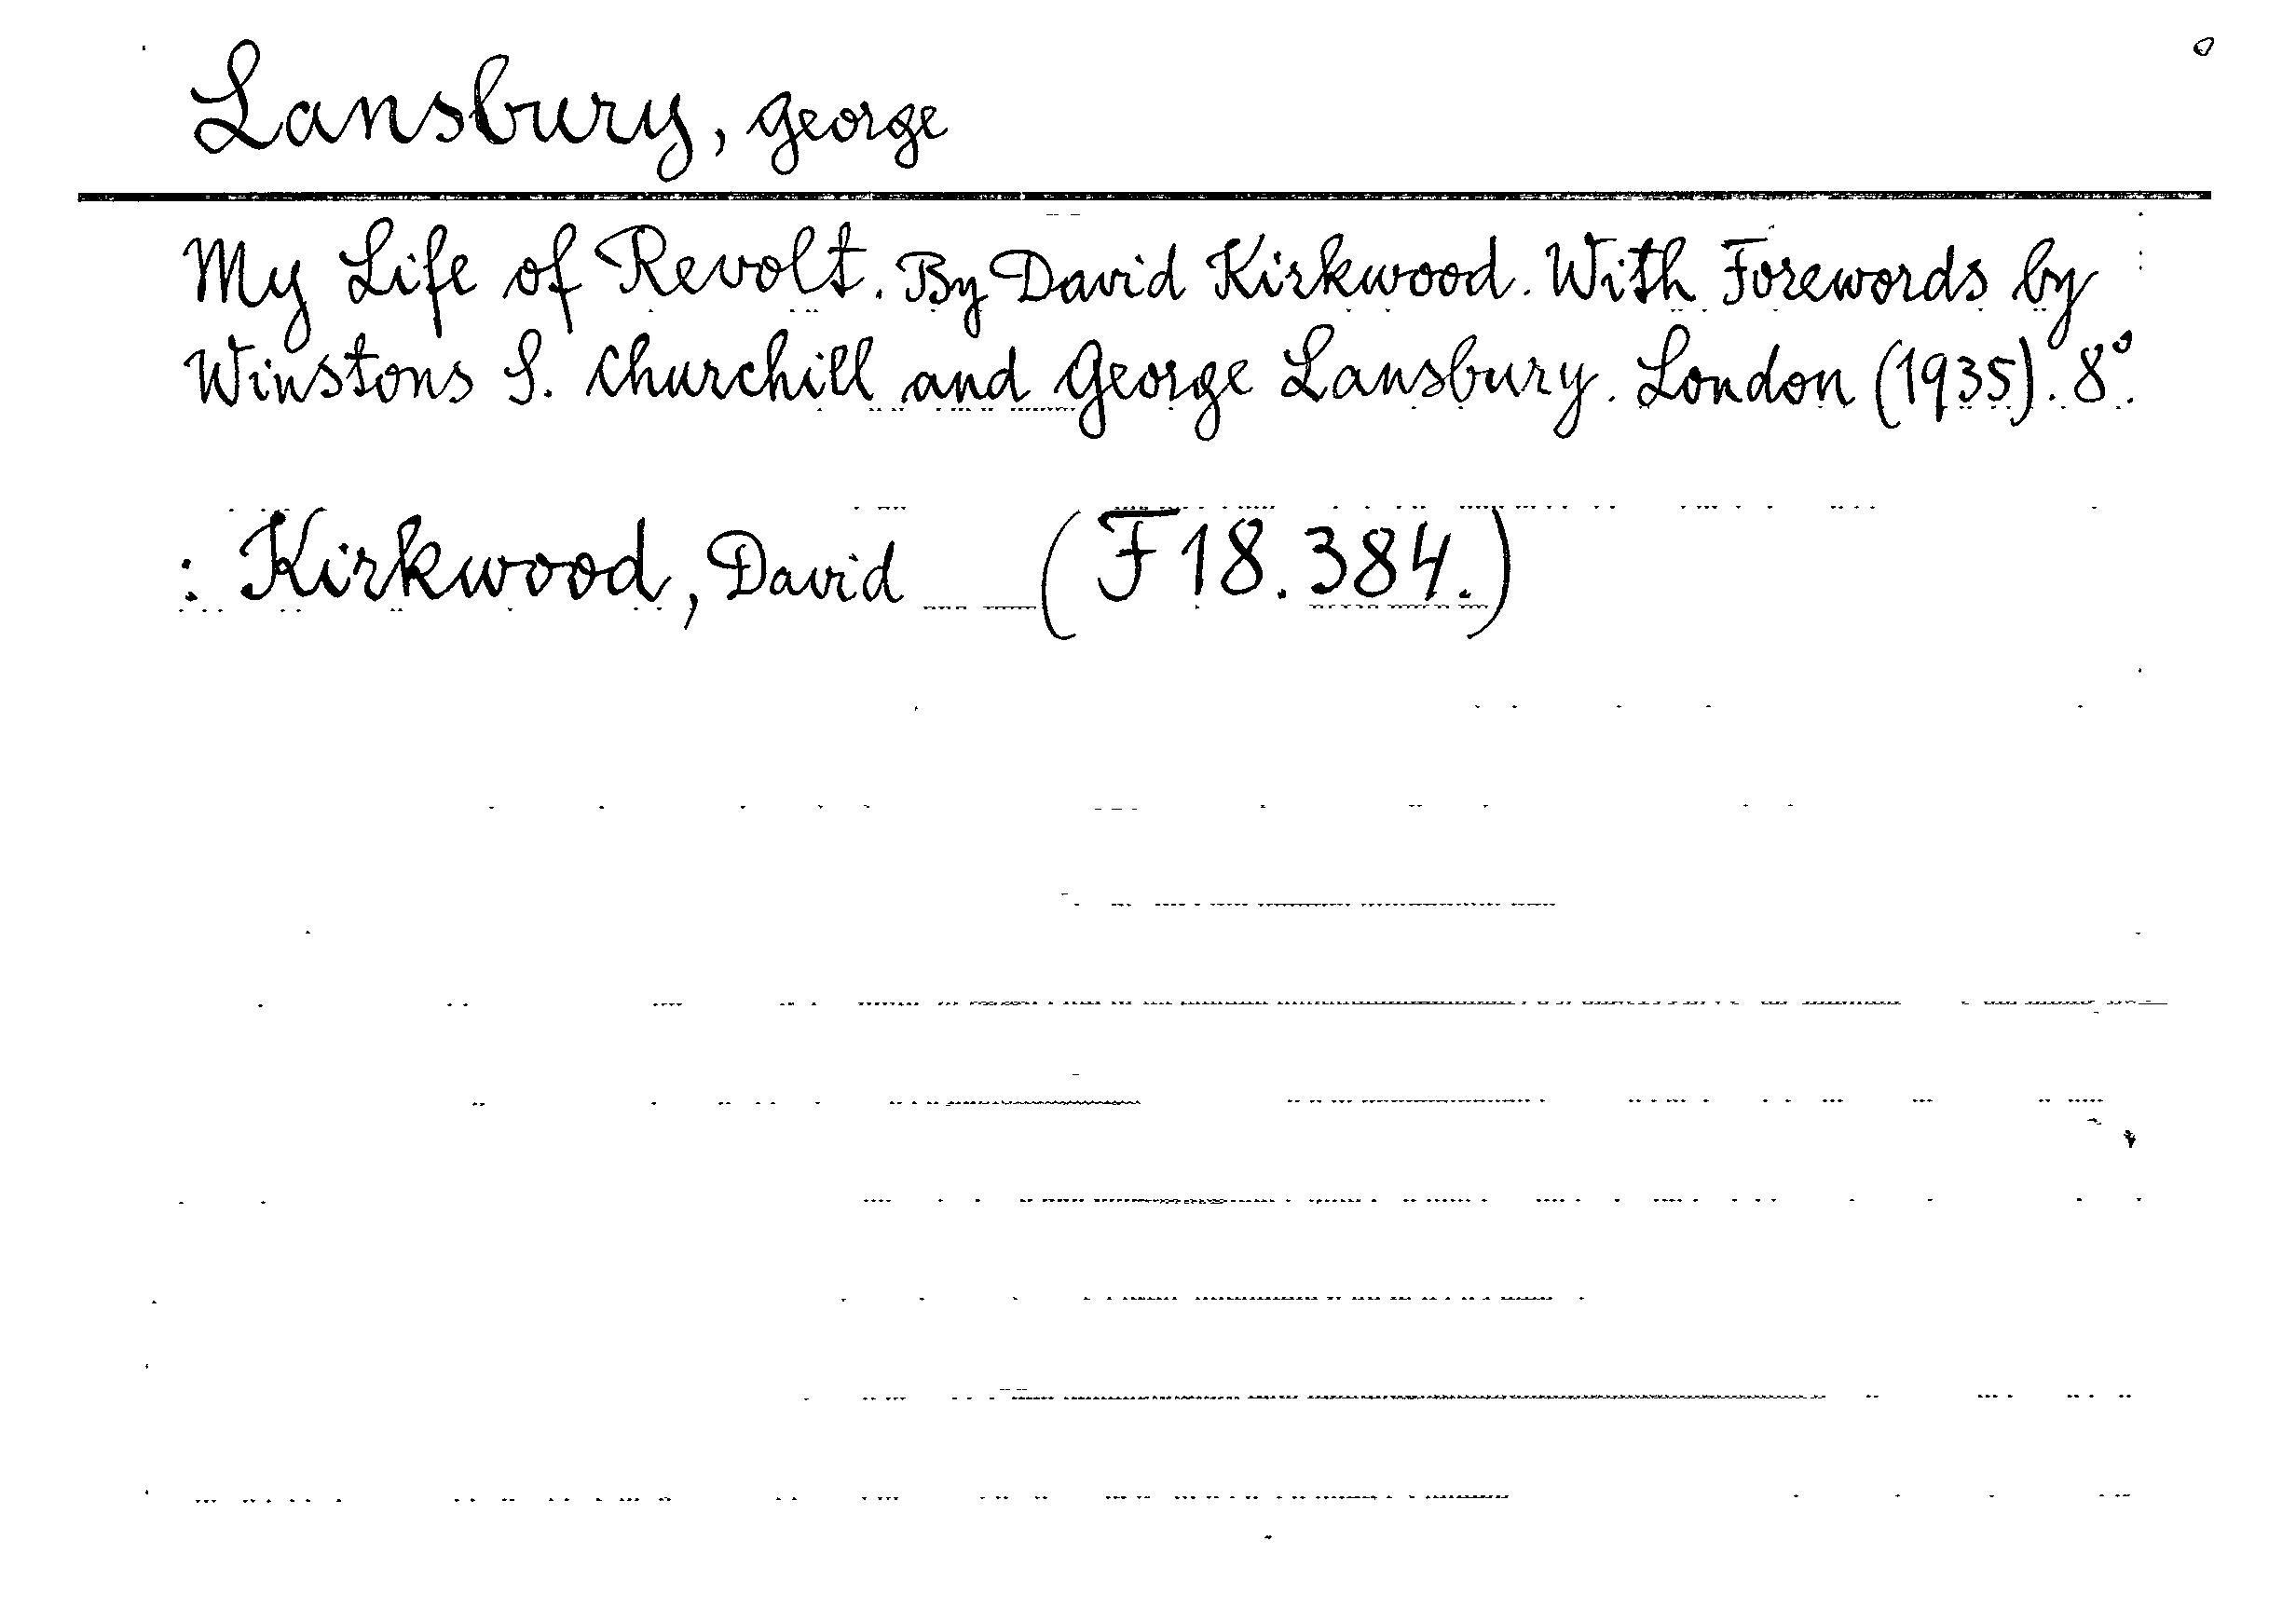 Lansbury, George
My Life of Revolt. By David Kirkwood. With Forewords by
Winstons S. Churchill and George Lansbury. London (1935). 8°.
: Kirkwood, David (F 18.384.)